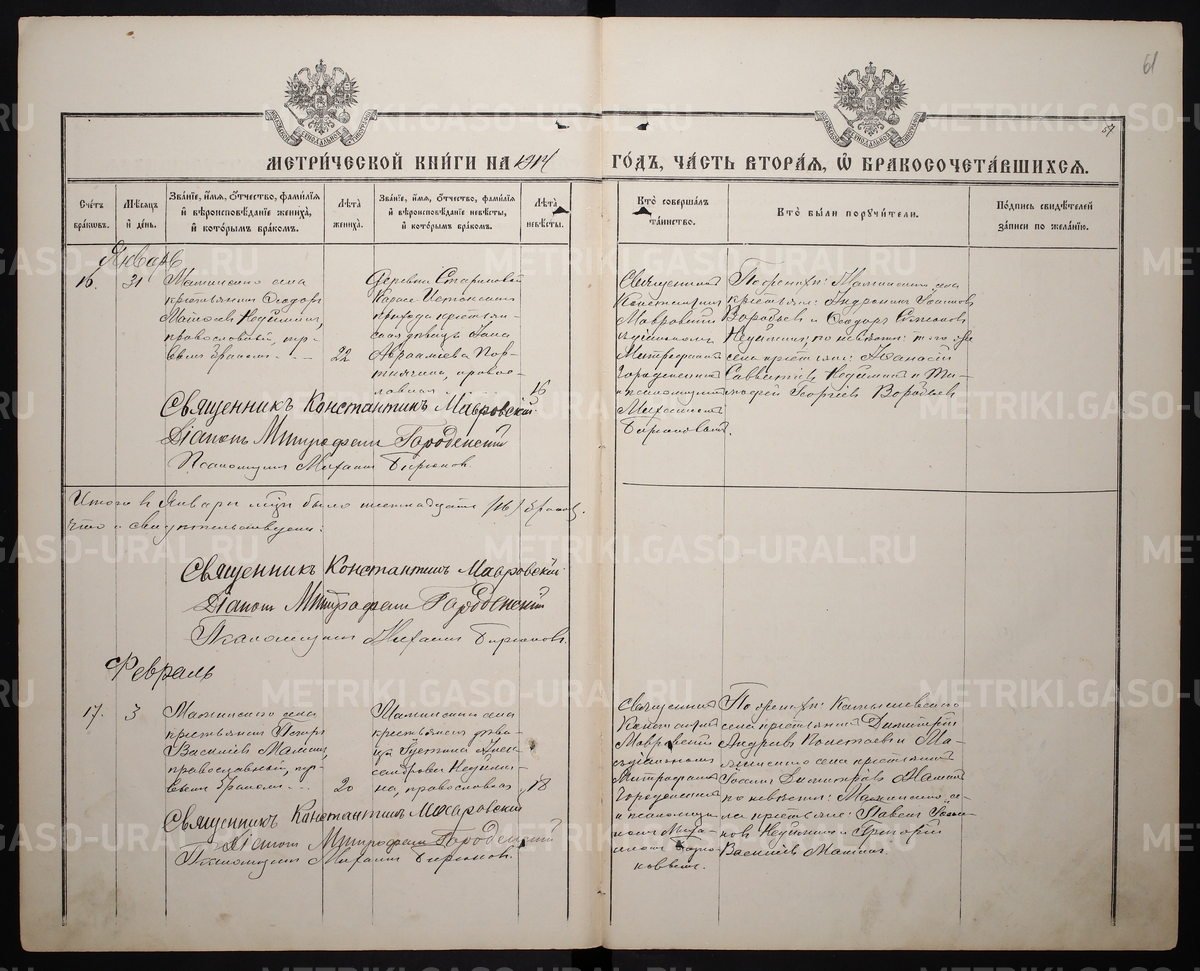 61
57
МЕТРИ́ЧЕСКОЙ КНИ́ГИ НА 1914
ГО́ДЪ, ЧА́СТЬ ВТОРА́Я, Ѽ БРАКОСОЧЕТА́ВШИХСѦ.
Сче́тъ бра́ковъ.
Мѣ́сяцъ и́ де́нь.
Зва́нїе, и́мя, о́тчество, фами́лїя и́ вѣроисповѣ́данїе жениха̀, и́ кото́рымъ бра́комъ.
Лѣ́та жениха̀.
Зва́нїе, и́мя, о́тчество, фами́лїя и́ вѣроисповѣ́данїе невѣ́сты, и́ кото́рымъ бра́комъ.
Лѣ́та невѣ́сты.
Кто̀ соверша́лъ та́инство.
Кто̀ бы́ли поручи́тели.
По́дпись свидѣ́телей за́писи по жела́нїю.
Январь
16.
31
Маминскаго села
крестьянинъ Ѳеодоръ
православный, пер-
вымъ бракомъ.
22
Деревни Стариковой
Авраамiева Пор-
тнягина, правос-
лавная
16
Священникъ
Константинъ
Мавровскiй
съ дiакономъ
Митрофаномъ
Городенскимъ
и псаломщикомъ
Михаиломъ
Бирюковымъ.
По женихѣ: Маминскаго села
крестьяне: Андроникъ
Воробьевъ и Ѳеодоръ
по невѣстѣ: того же
села крестьяне: Аѳанасiй
Георгiевъ Воробьевъ
Священникъ Константинъ Мавровскiй
Дiаконъ Митрофанъ Городенскiй
Псаломщикъ Михаилъ Бирюковъ.
Итого въ Январѣ мцѣ было шестнадцать (16) браковъ,
что и свидѣтельствуемъ:
Священникъ Константинъ Мавровскiй
Дiаконъ Митрофанъ Городенскiй
Псаломщикъ Михаилъ Бирюковъ.
Февраль
17.
3
Маминскаго села
крестьянинъ Петръ
Васильевъ Маминъ,
православный, пер-
вымъ бракомъ.
20
Маминскаго села
крестьянская дѣви-
ца Устинья Алек-
сандрова
православная
18
Священникъ
Константинъ
Мавровскiй
съ дiакономъ
Митрофаномъ
Городенскимъ
и псаломщи-
комъ Миха-
иломъ Бирю-
ковымъ.
По женихѣ: Камышевскаго
села крестьянинъ Димитрiй
Андреевъ и Ма-
минскаго села крестьянинъ
Димитрiевъ Маминъ
по невѣстѣ: Маминскаго се-
ла крестьяне: Павелъ
и Григорiй
Васильевъ Маминъ.
Священникъ Константинъ Мавровскiй
Дiаконъ Митрофанъ Городенскiй
Псаломщикъ Михаилъ Бирюковъ.
METRIKI.GASO-URAL.RU